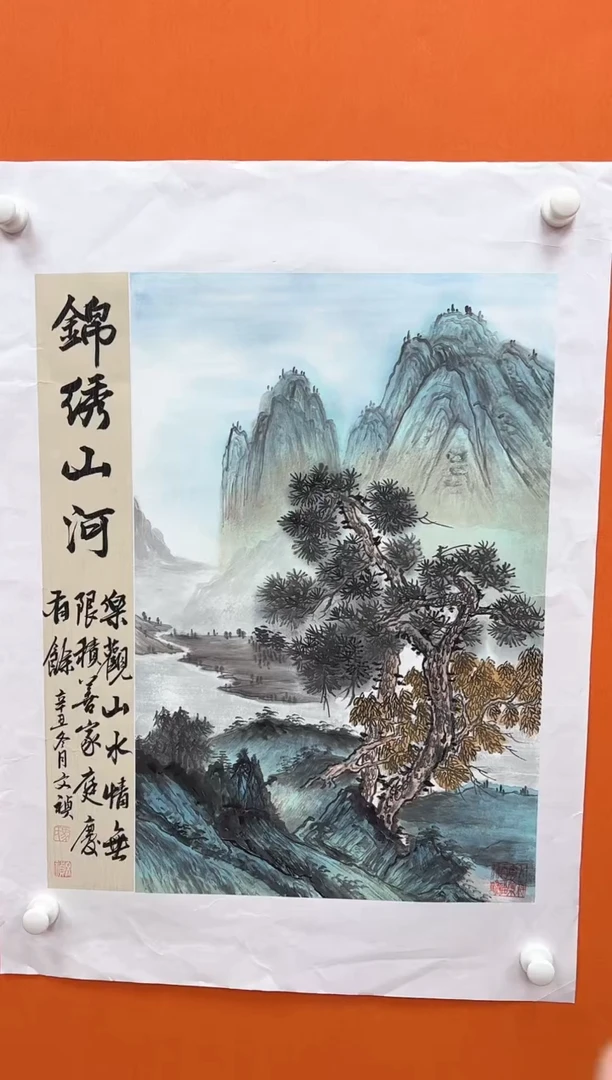 錦绣山河
樂觀山水情無
限積善家庭慶
有餘
辛丑冬月文禎